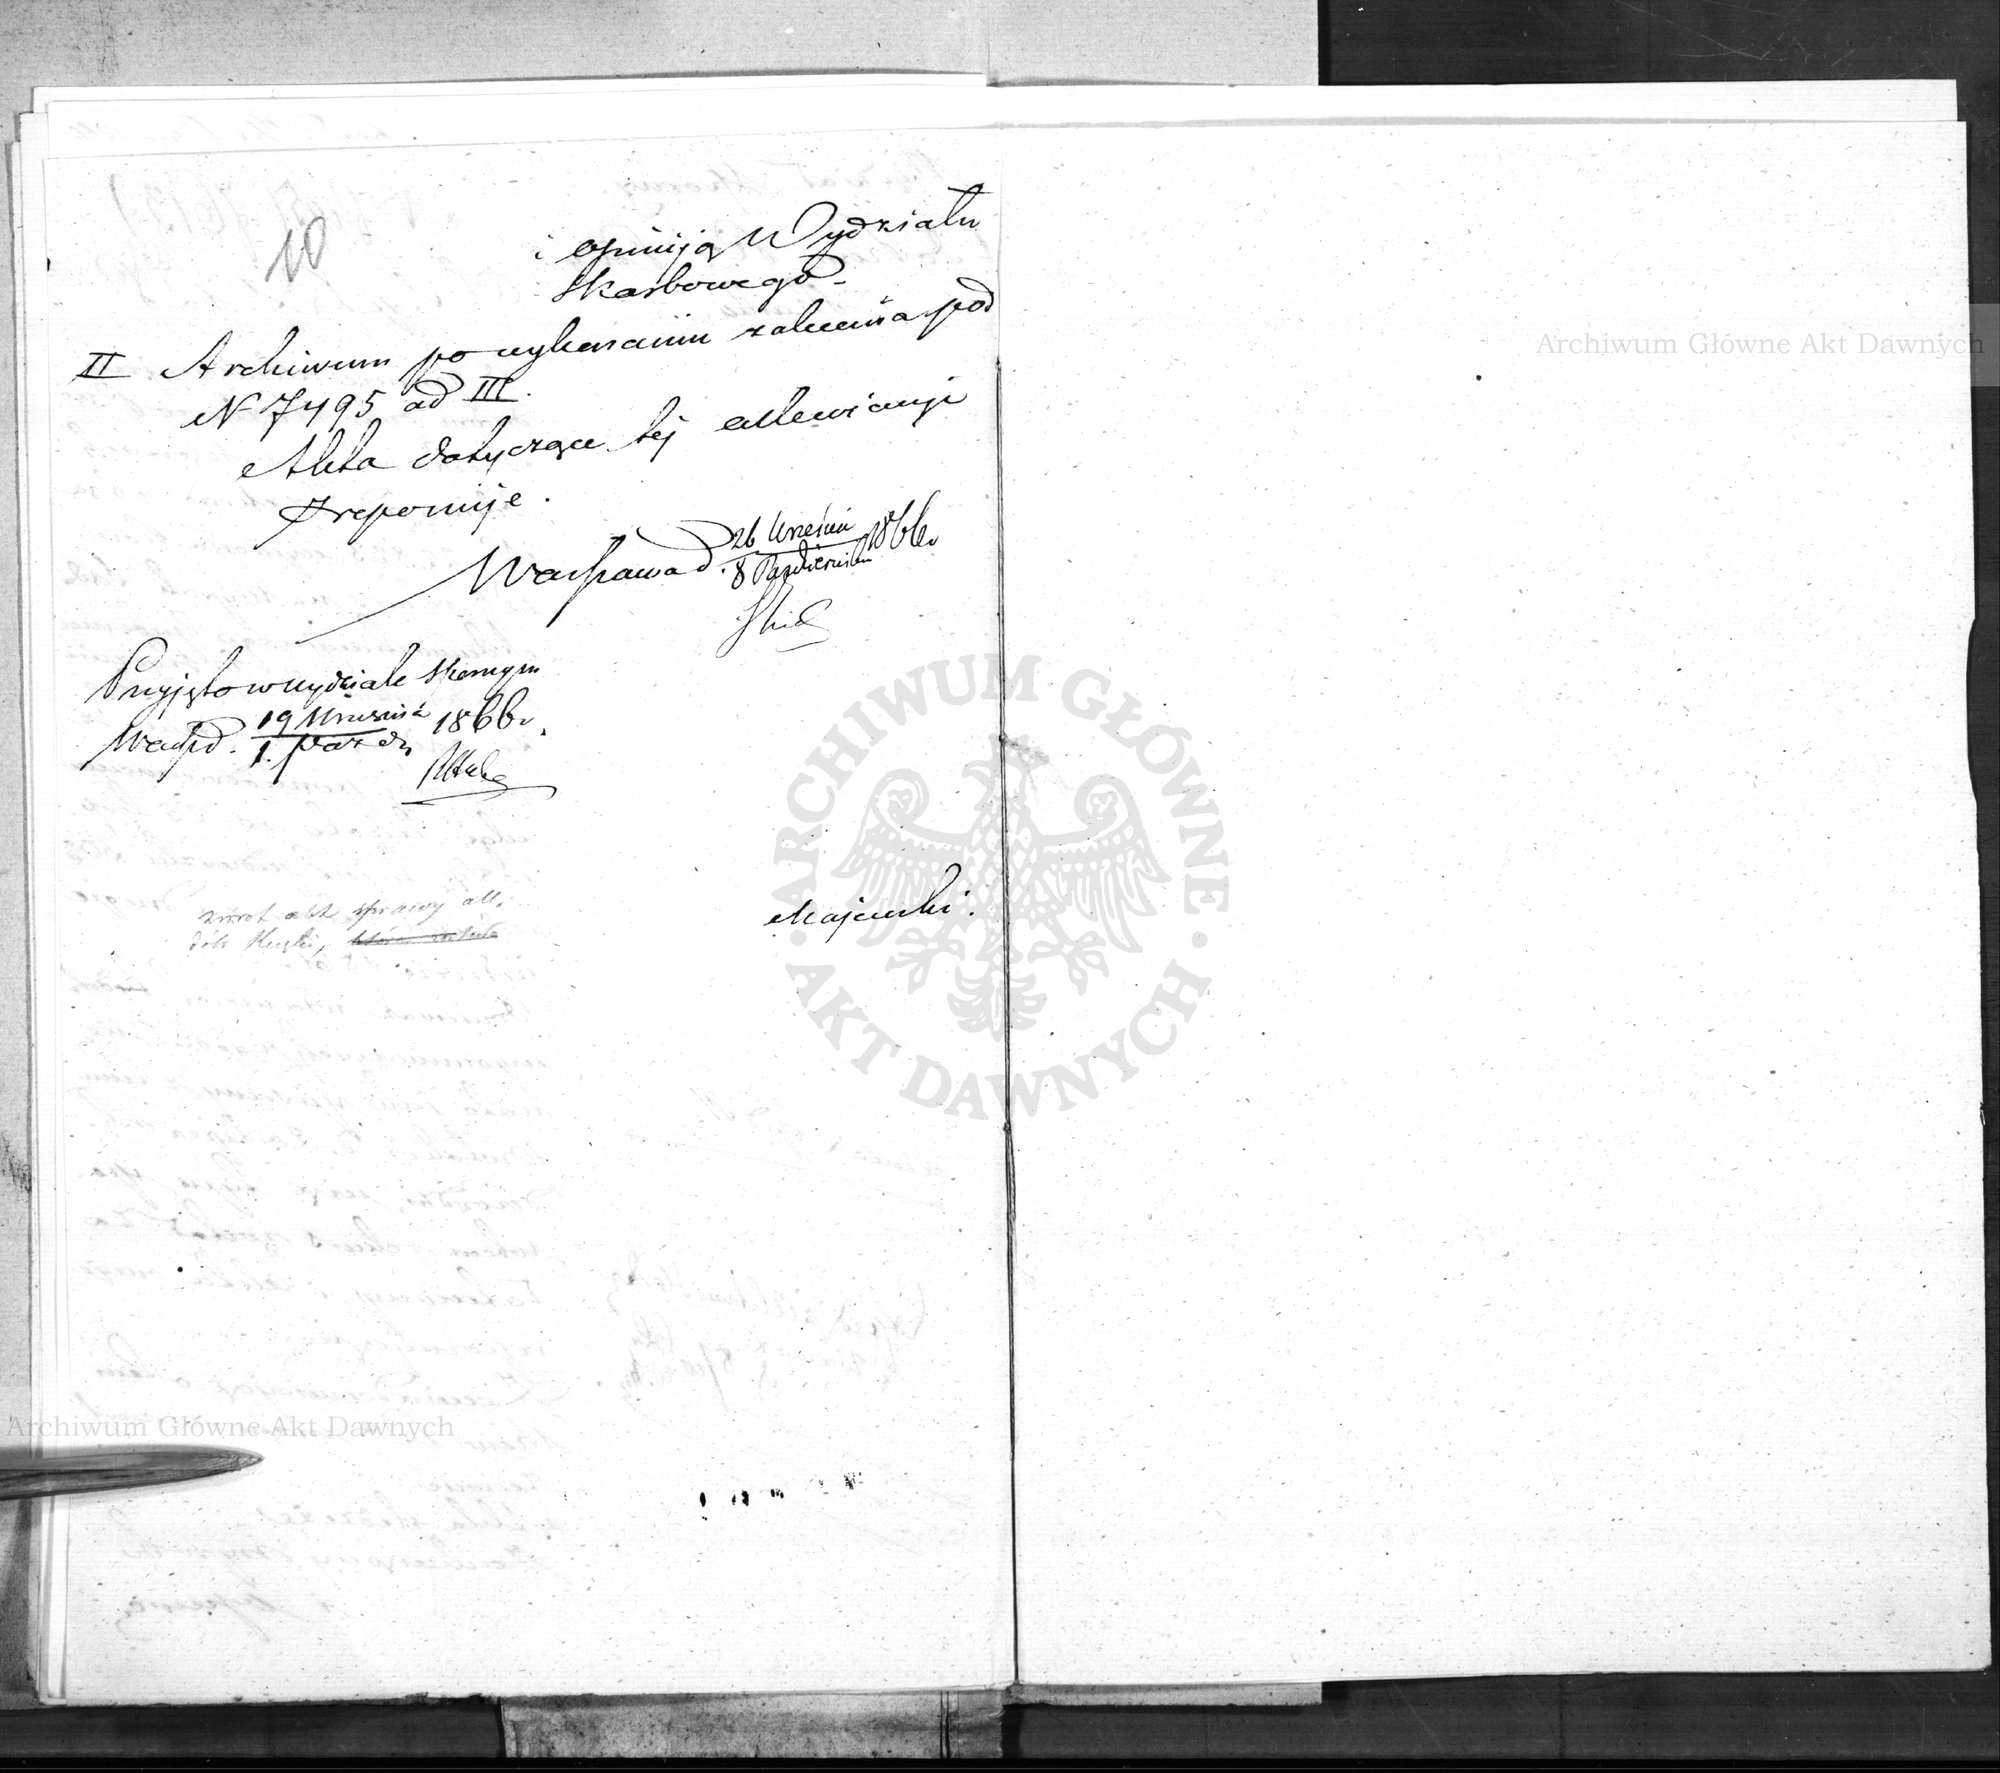 10
i opiniją Wydziału
Skarbowego.
II Archiwum po wykonaniu zalecenia pod
N 7495 ad III.
Akta dotyczące tej allewiacyi
zreponuje.
Warszawa d. 26 Września / 8 Października 1866 r.
Przyjęto w wydziale Skarnym
Warsz d. 19 Września / 1. paźdz 1866 r.
zwrot akt sprawy all.
dóbr
Majewski.
Archiwum Główne Akt Dawnych
ARCHIWUM GŁÓWNE AKT DAWNYCH
Archiwum Główne Akt Dawnych